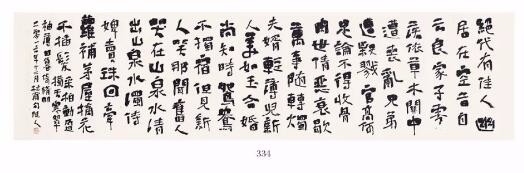 絕代有佳人幽
居在空谷自
云良家子零
落依草木關中
遭喪亂兄弟
遭殺戮官高何
足論不得收骨
肉世情惡衰歇
萬事隨轉燭
夫婿輕薄兒新
人美如玉合昏
尚知時鴛鴦
不獨宿但見新
人笑那聞舊人
哭在山泉水清
出山泉水濁侍
婢賣珠回牽
蘿補茅屋摘花
不插髮采柏動盈
掬天寒翠
袖薄日暮倚修竹
二零一三年十二月
334